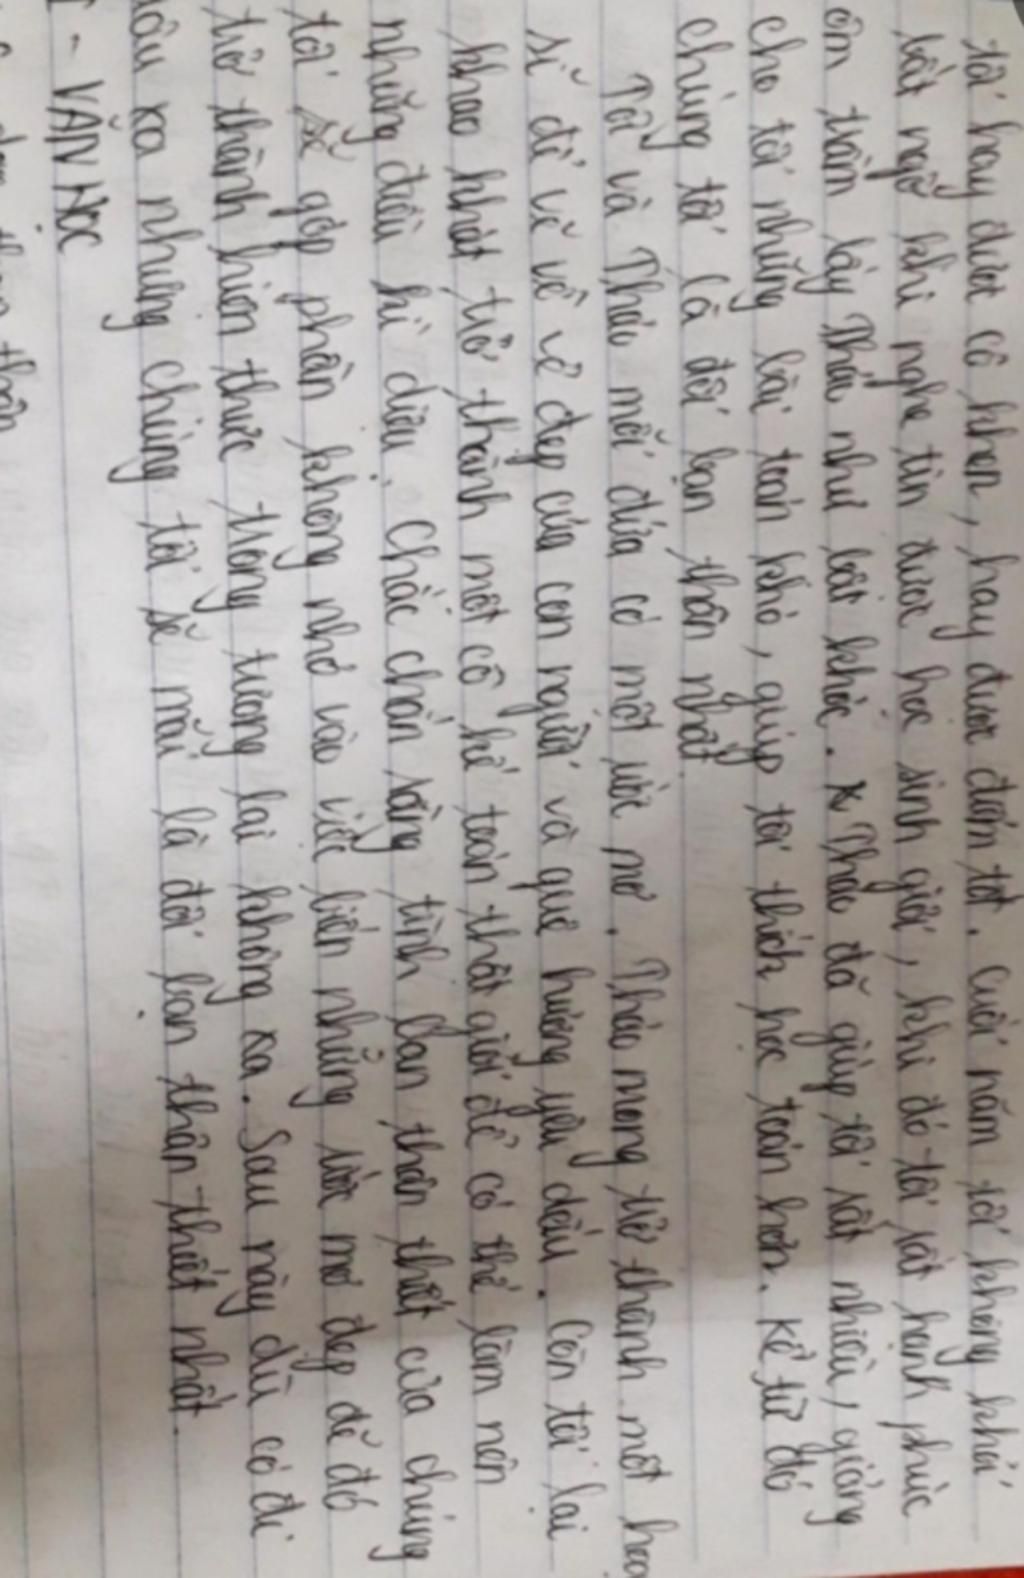 tôi hay được cô khen, hay được điểm tốt. Cuối năm tôi không khỏi
bất ngờ khi nghe tin được học sinh giỏi, khi đó tôi rất hạnh phúc
ôm trầm lấy Thảo như bật khóc. Thảo đã giúp tôi rất nhiều, giảng
cho tôi những bài toán khó, giúp tôi thích học toán hơn. Kể từ đó
chúng tôi là đôi bạn thân nhất.
Tôi và Thảo mỗi đứa có một ước mơ. Thảo mong trở thành một hoạ
sĩ để vẽ về vẻ đẹp của con người và quê hương yêu dấu. Còn tôi lại
khao khát trở thành một cô kế toán thật giỏi để có thể làm nên
những điều kì diệu. Chắc chắn rằng tình bạn thân thiết của chúng
tôi sẽ góp phần không nhỏ vào việc biến những ước mơ đẹp đẽ đó
trở thành hiện thực trong tương lai không xa. Sau này dù có đi
đâu xa nhưng chúng tôi sẽ mãi là đôi bạn thân thiết nhất.
- VĂN HỌC